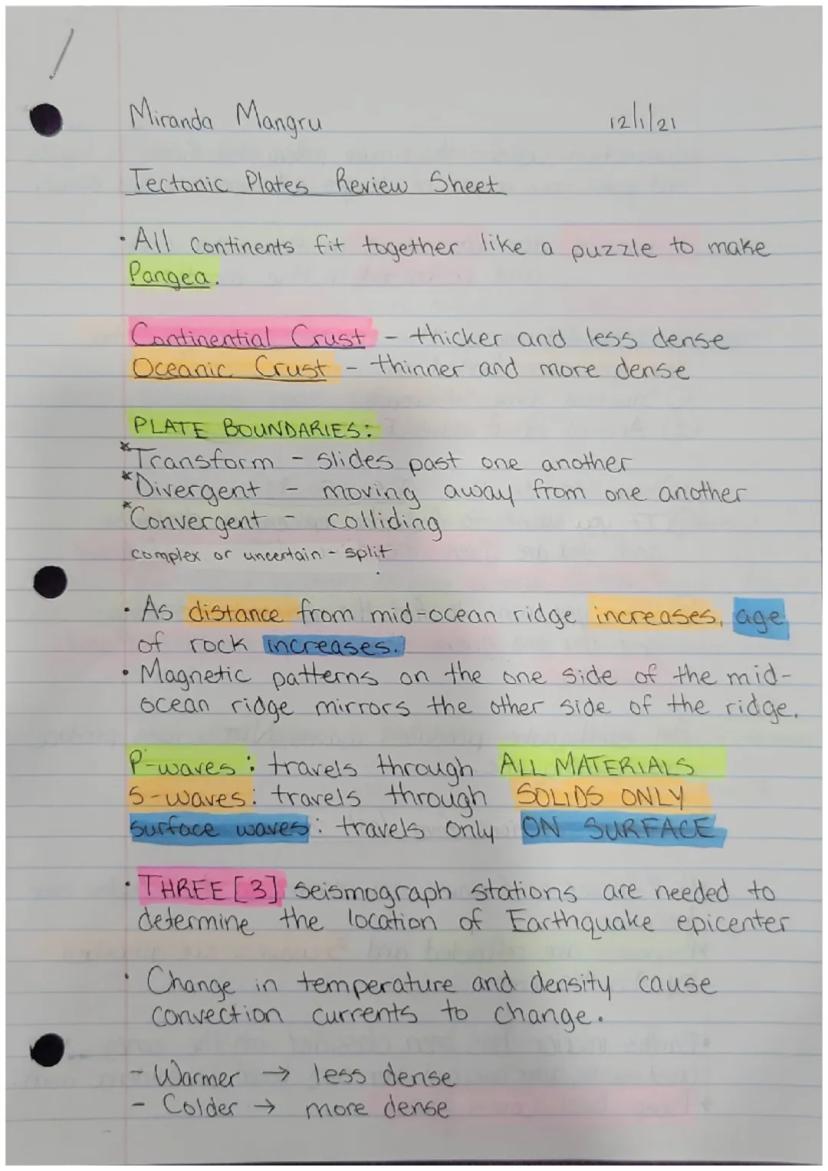 Miranda Mangru 12/1/21
Tectonic Plates Review Sheet
· All continents fit together like a puzzle to make
Pangea.
Continential Crust - thicker and less dense
Oceanic Crust - thinner and more dense
PLATE BOUNDARIES:
*Transform - slides past one another
*Divergent - moving away from one another
*Convergent - colliding
complex or uncertain - split
· As distance from mid-ocean ridge increases, age
of rock increases.
· Magnetic patterns on the one side of the mid-
ocean ridge mirrors the other side of the ridge.
P-waves: travels through ALL MATERIALS
S-waves: travels through SOLIDS ONLY
Surface waves: travels only ON SURFACE
· THREE [3] seismograph stations are needed to
determine the location of Earthquake epicenter
· Change in temperature and density cause
convection currents to change.
- Warmer → less dense
- Colder → more dense